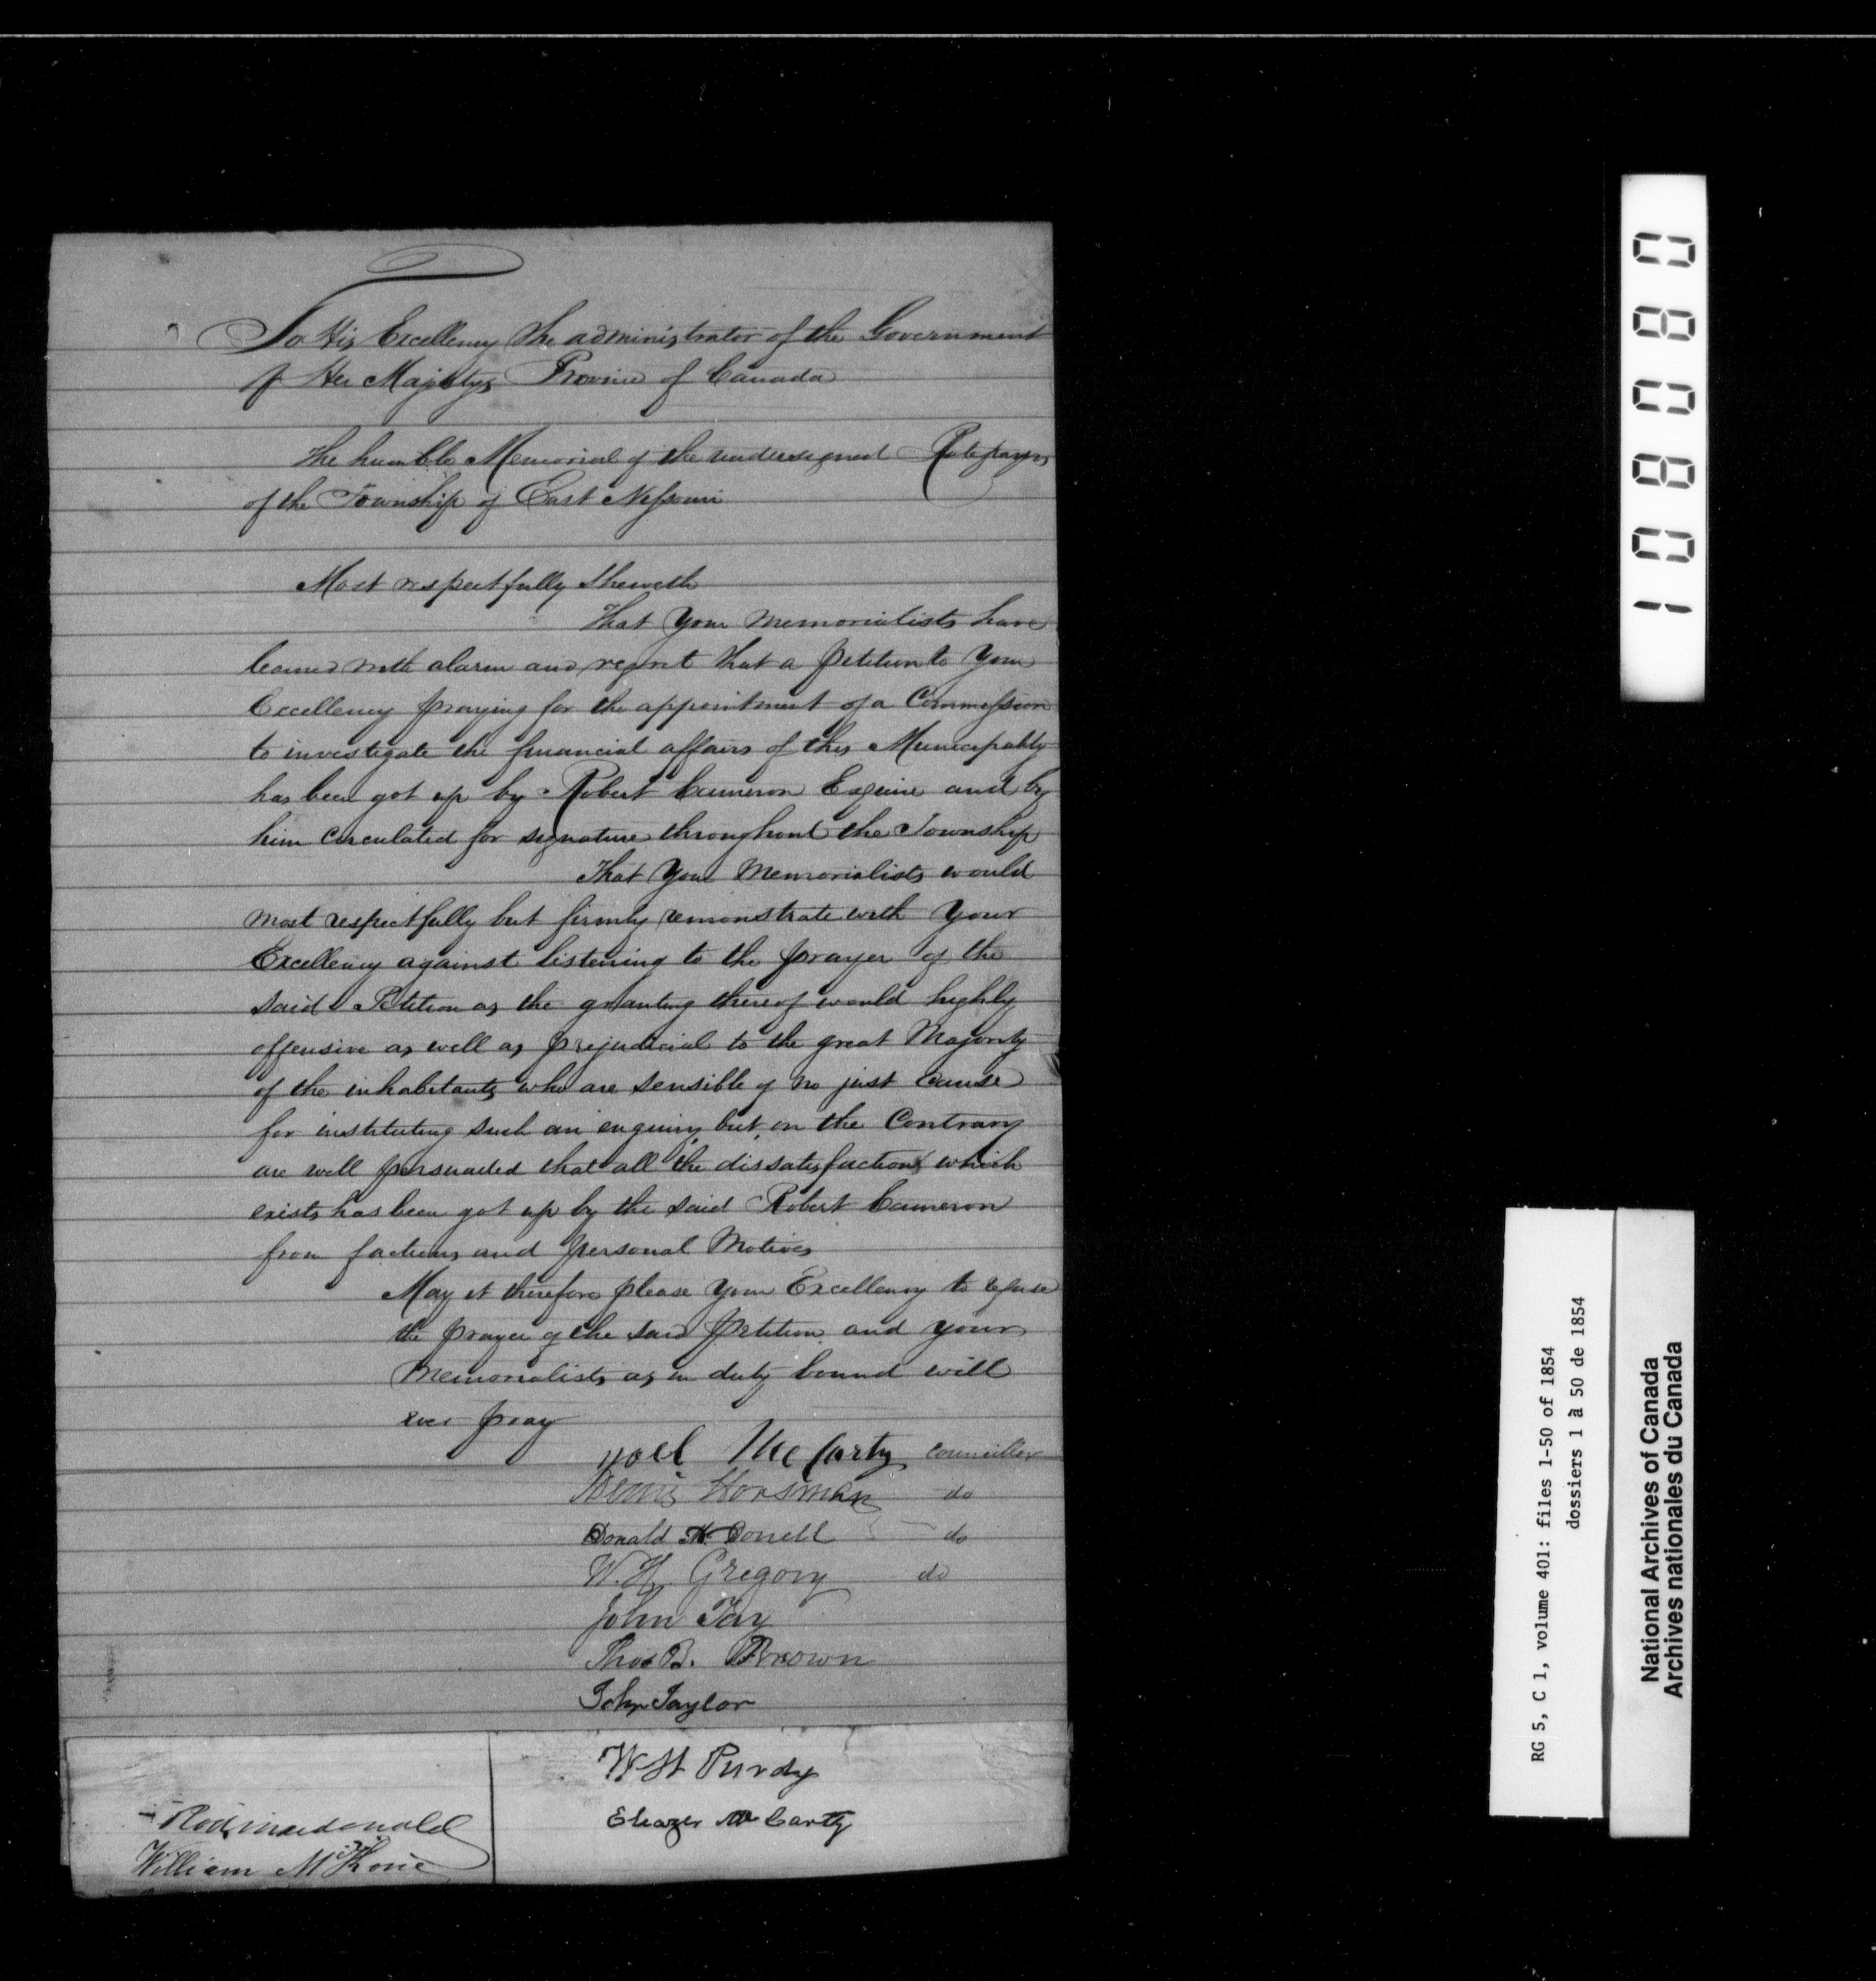 To His Excellency the administrator of the Government
of Her Majestys Province of Canada
The humble Memorial of the undersigned Ratepayers
of the Township of East Nissouri
Most respectfully Sheweth
That Your Memorialists have
learned with alarm and regret that a petition to Your
Excellency praying for the appointment of a Commission
to investigate the financial affairs of this Municipality
has been got up by Robert Cameron Esquire and by
him circulated for signature throughout the Township
That Your Memorialists would
most respectfully but firmly remonstrate with Your
Excellency against listening to the prayer of the
said Petition as the granting thereof would highly
offensive as well as prejudicial to the great Majority
of the inhabitants who are sensible of no just cause
for instituting such an enquiry but on the Contrary
are well persuaded that all the dissatisfaction which
exists has been got up by the said Robert Cameron
from factious and personal Motives
May it therefore please Your Excellency to refuse
the prayer of the said petition and your
Memorialists as in duty bound will
ever pray
Noel McCarty councillor
Horsman do
Donald do
W. H. Gregory do
John
Thos B. Brown
John Taylor
W H Purdy
Eleazer McCarty
Rod macdonald
William
108080
RG 5, C 1, volume 401: files 1-50 of 1854
dossiers 1 à 50 de 1854
National Archives of Canada
Archives nationales du Canada